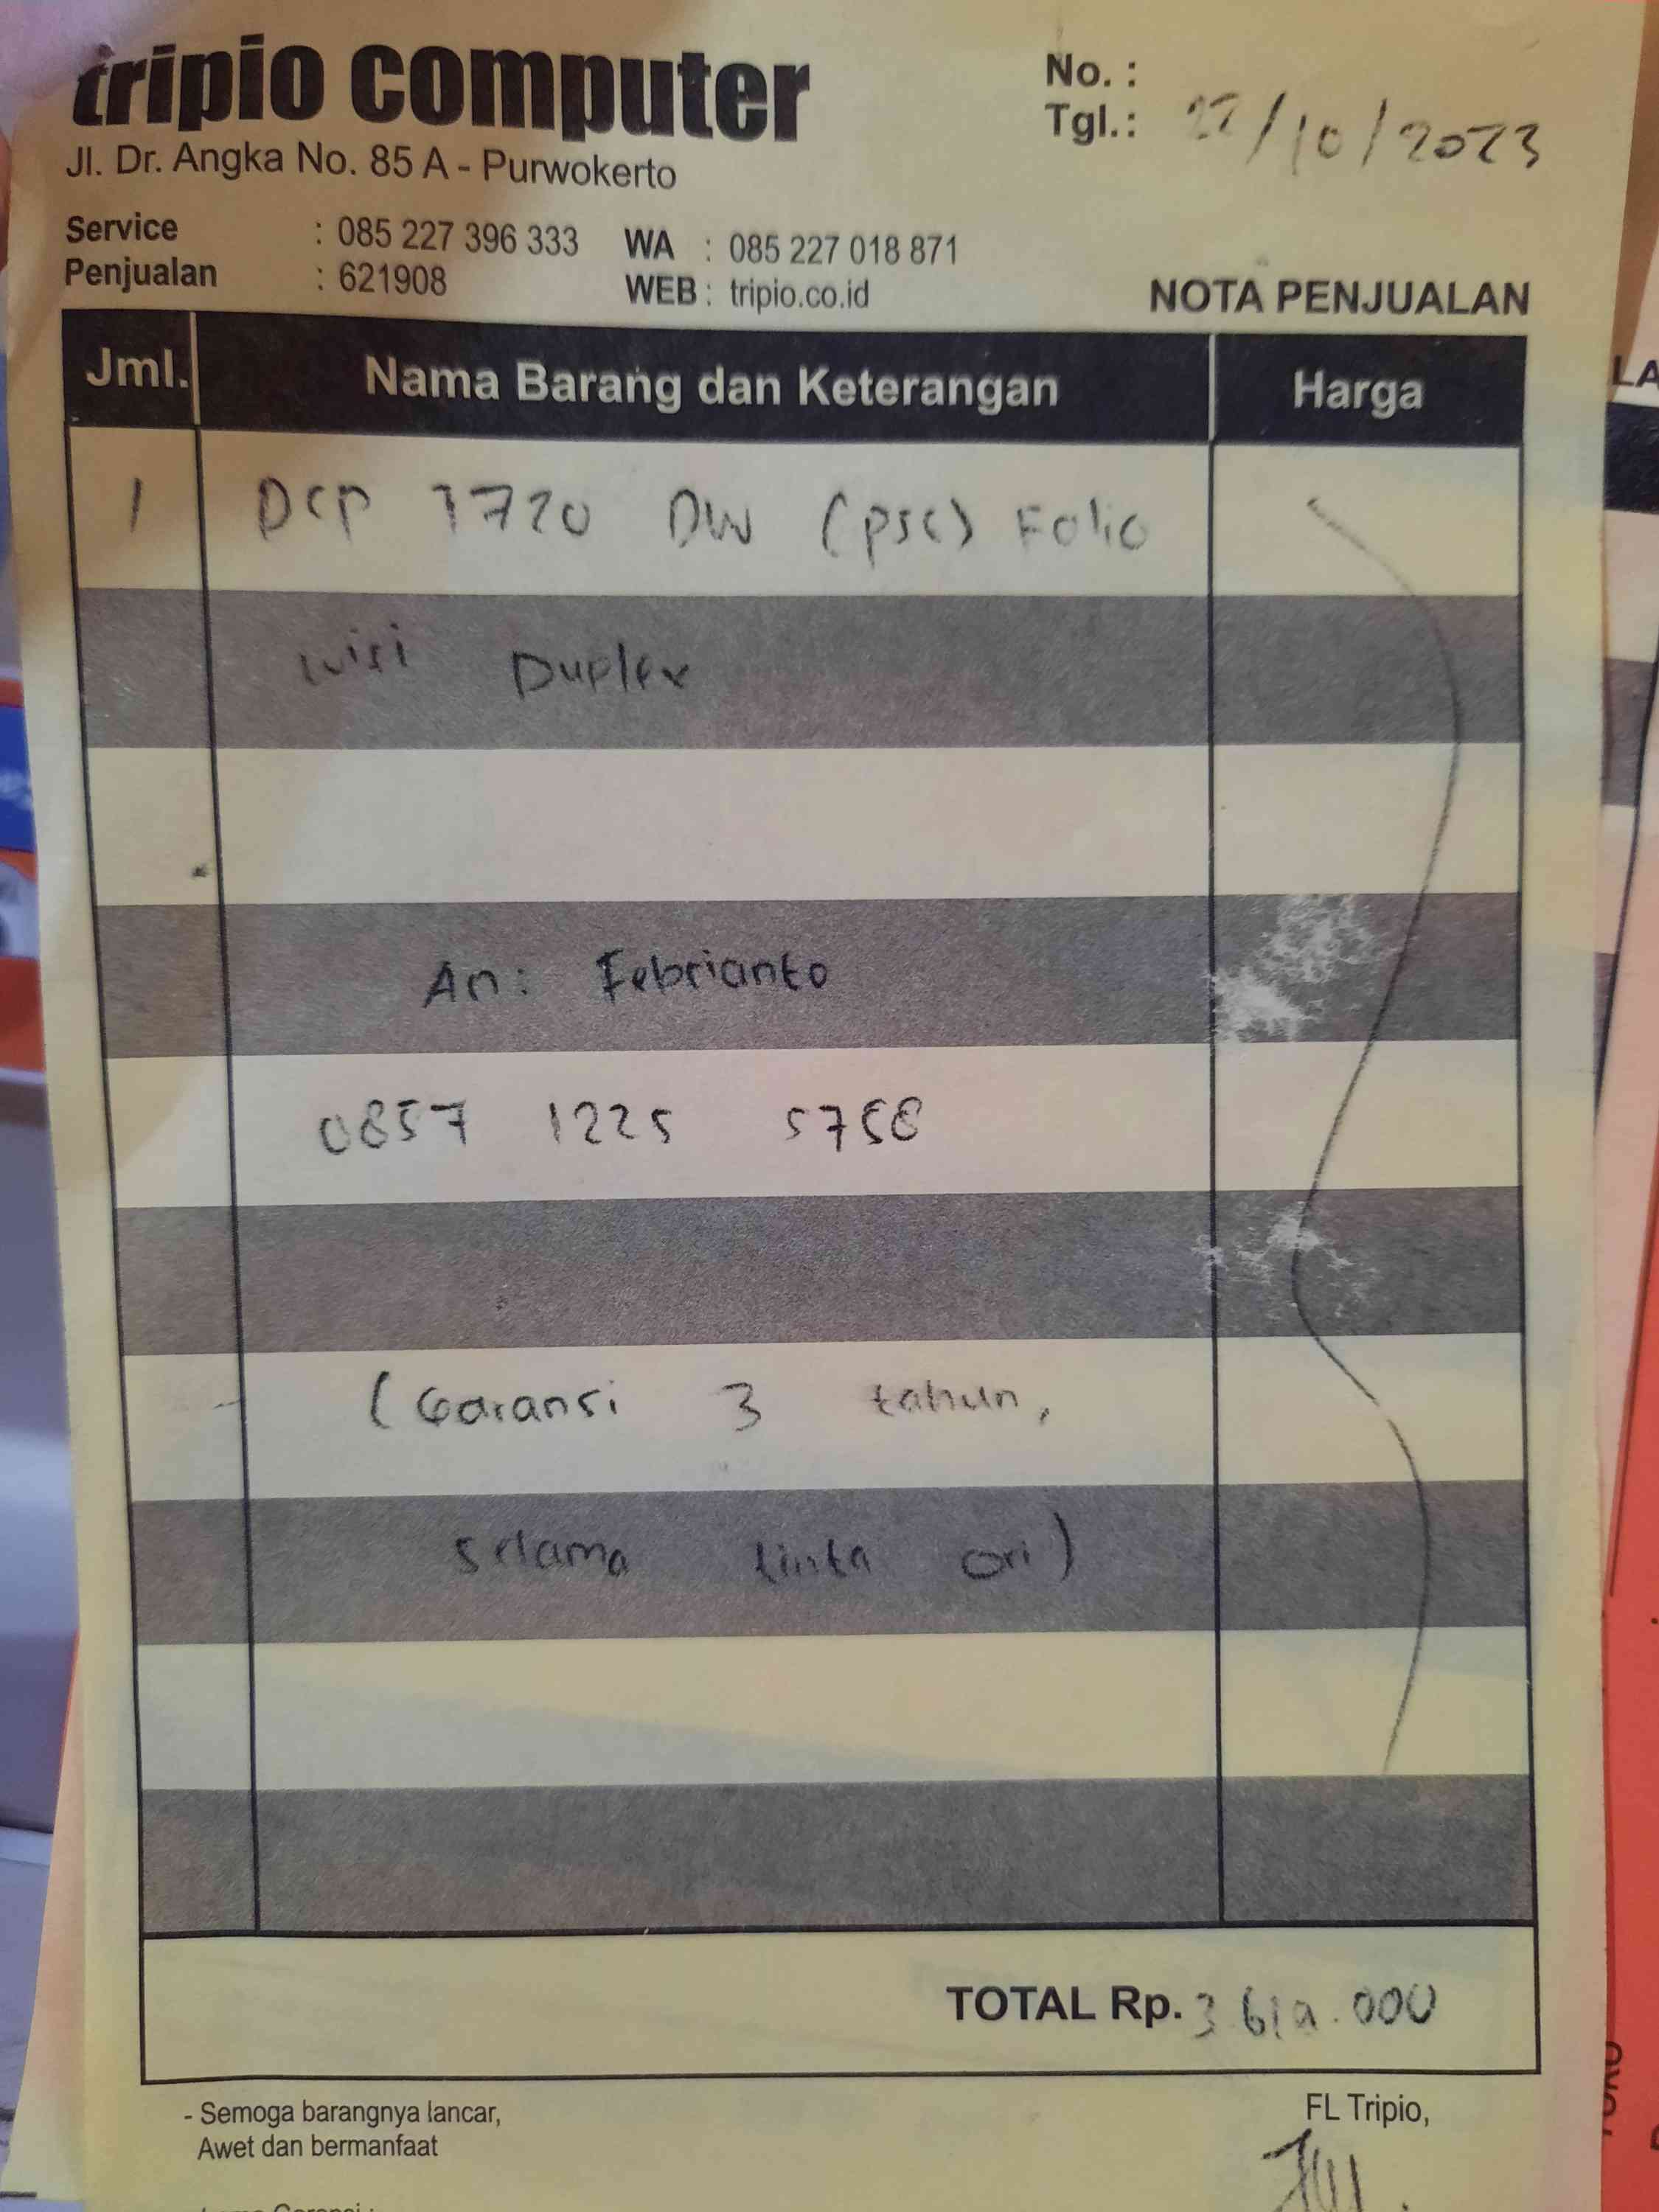 tripio computer
Jl. Dr. Angka No. 85 A - Purwokerto
No. :
Tgl.: 27/10/2023
Service : 085 227 396 333 WA : 085 227 018 871
Penjualan : 621908 WEB : tripio.co.id
NOTA PENJUALAN
Jml. Nama Barang dan Keterangan Harga
1 DCP T720 DW (PSC) Folio
wifi Duplex
An: Febrianto
0857 1225 5758
(Garansi 3 tahun,
selama tinta ori)
TOTAL Rp. 3.619.000
- Semoga barangnya lancar,
Awet dan bermanfaat
FL Tripio,